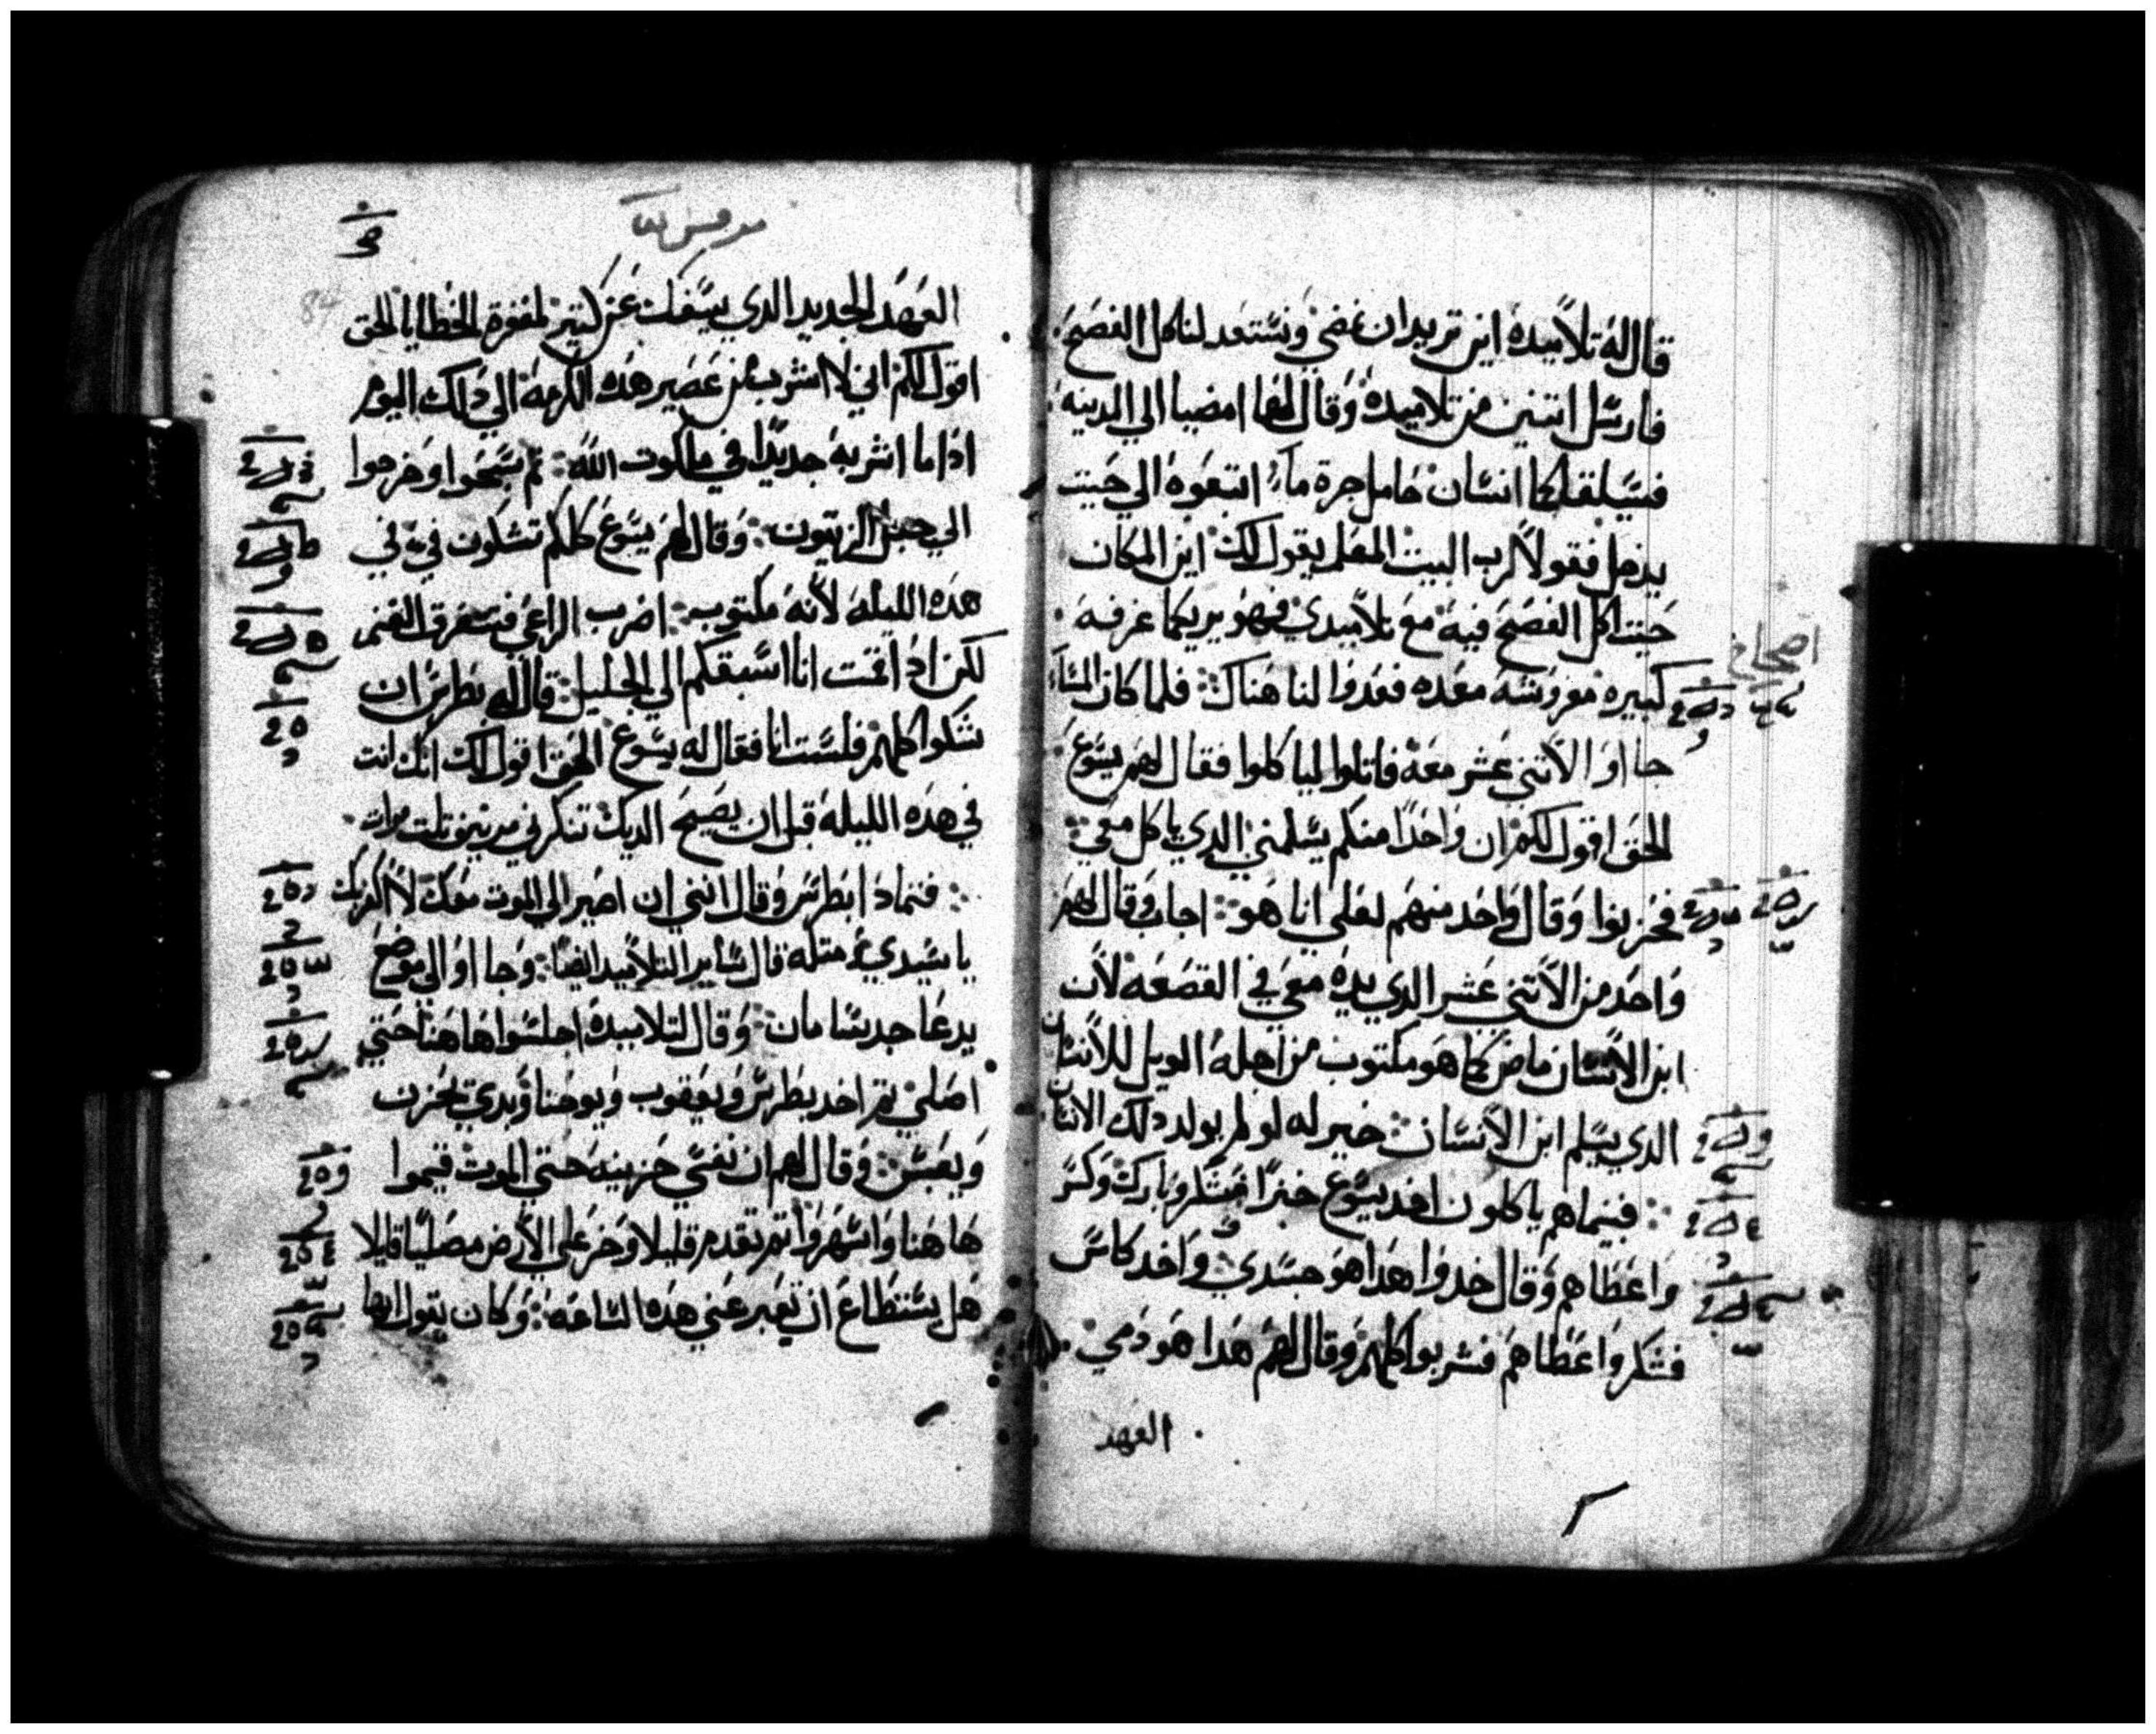 قال له تلاميذه اين تريد ان نمضي ونستعد لناكل الفصح
فارسل اتنين من تلاميده وقال لهما امضيا الي المدينه
فسيلقاكما انسان حامل جرة ماء اتبعوه الي حيت
يدخل فقولا لرب البيت المعلم يقول لك اين المكان
حيت اكل الفصح فيه مع تلاميدي فهو يريكما غرفه
كبيره مفروشه معده فعدوا لنا هناك فلما كان المساء
جااوا الاتني عشر معه فاتكوا لياكلوا فقال لهم يسوع
الحق اقول لكم ان واحدا منكم يسلمني الدي ياكل معي
فحزنوا وقال واحد منهم لعلي انا هو اجاب وقال لهم
واحد من الاتني عشر الدي يده معي في القصعه لان
ابن الانسان ماض كما هو مكتوب من اجله الويل للانسان
الدي يسلم ابن الانسان خير له لو لم يولد دلك الانسان
فبينما هم ياكلون اخد يسوع خبزا فشكر وبارك وكسر
واعطاهم وقال خدوا هدا هو جسدي واخد كاس
فشكر واعطاهم فشربوا كلهم وقال لهم هدا هو دمي
العهد
اصحاح
العهد الجديد الدي يسفك عن كتير لمغفرة الخطايا الحق
اقول لكم اني لا اشرب من عصير هده الكرمه الي دلك اليوم
اداما اشربه جديدا في ملكوت الله تم سبحوا وخرجوا
الي جبل الزيتون وقال لهم يسوع كلكم تشكون في في
هده الليله لانه مكتوب اضرب الراعي فتتفرق الغنم
لكن ادا قمت انا اسبقكم الي الجليل قال له بطرس ان
شكوا كلهم فلست انا فقال له يسوع الحق اقول لك انك انت
في هده الليله قبل ان يصيح الديك تنكرني مرتين تلت مرات
فتمادا بطرس وقال انني ان اصير الي الموت معك لا اكفر بك
يا سيدي ومتله قال ساير التلاميد ايضا وجااوا الي موضع
يدعا جدسامان وقال لتلاميده اجلسوا هاهنا حتي
اصلي تم اخد بطرس ويعقوب ويوحنا وبدي يحزن
ويعبس وقال لهم ان نفسي حزينه حتي الموت قيموا
هاهنا واسهروا تم تقدم قليلا وخر علي الارض مصليا قايلا
هل يستطاع ان تعبر عني هده الساعه وكان يقول ايها